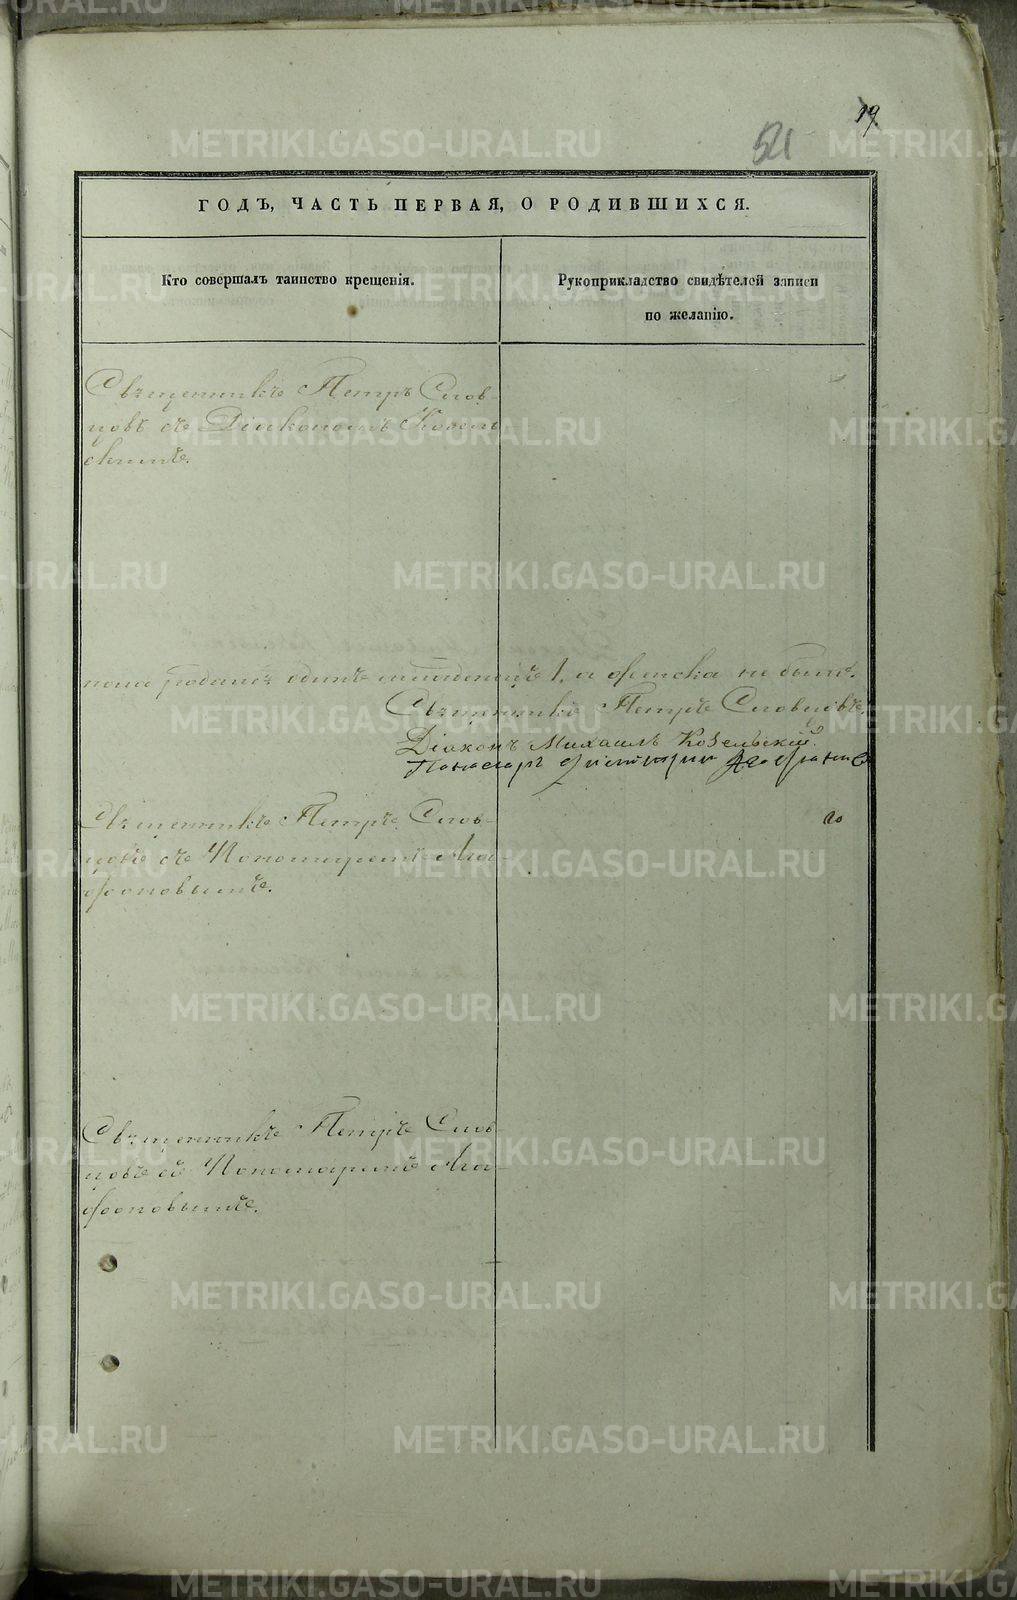 19.
51
ГОДЪ, ЧАСТЬ ПЕРВАЯ, О РОДИВШИХСЯ.
Кто совершалъ таинство крещенія.
Рукоприкладство свидѣтелей записи
по желанію.
Священникъ Петръ Слов-
цовъ съ Діакономъ Козель
скимъ.
одинъ 1, а женска не было.
Священникъ Петръ Словцовъ.
Діаконъ Михаилъ Козельскій
Понамарь
Священникъ Петръ Слов-
цовъ съ Пономаремъ Ага-
фоновымъ.
Священникъ Петръ Слов
цовъ съ Пономаремъ Ага-
фоновымъ.
METRIKI.GASO-URAL.RU